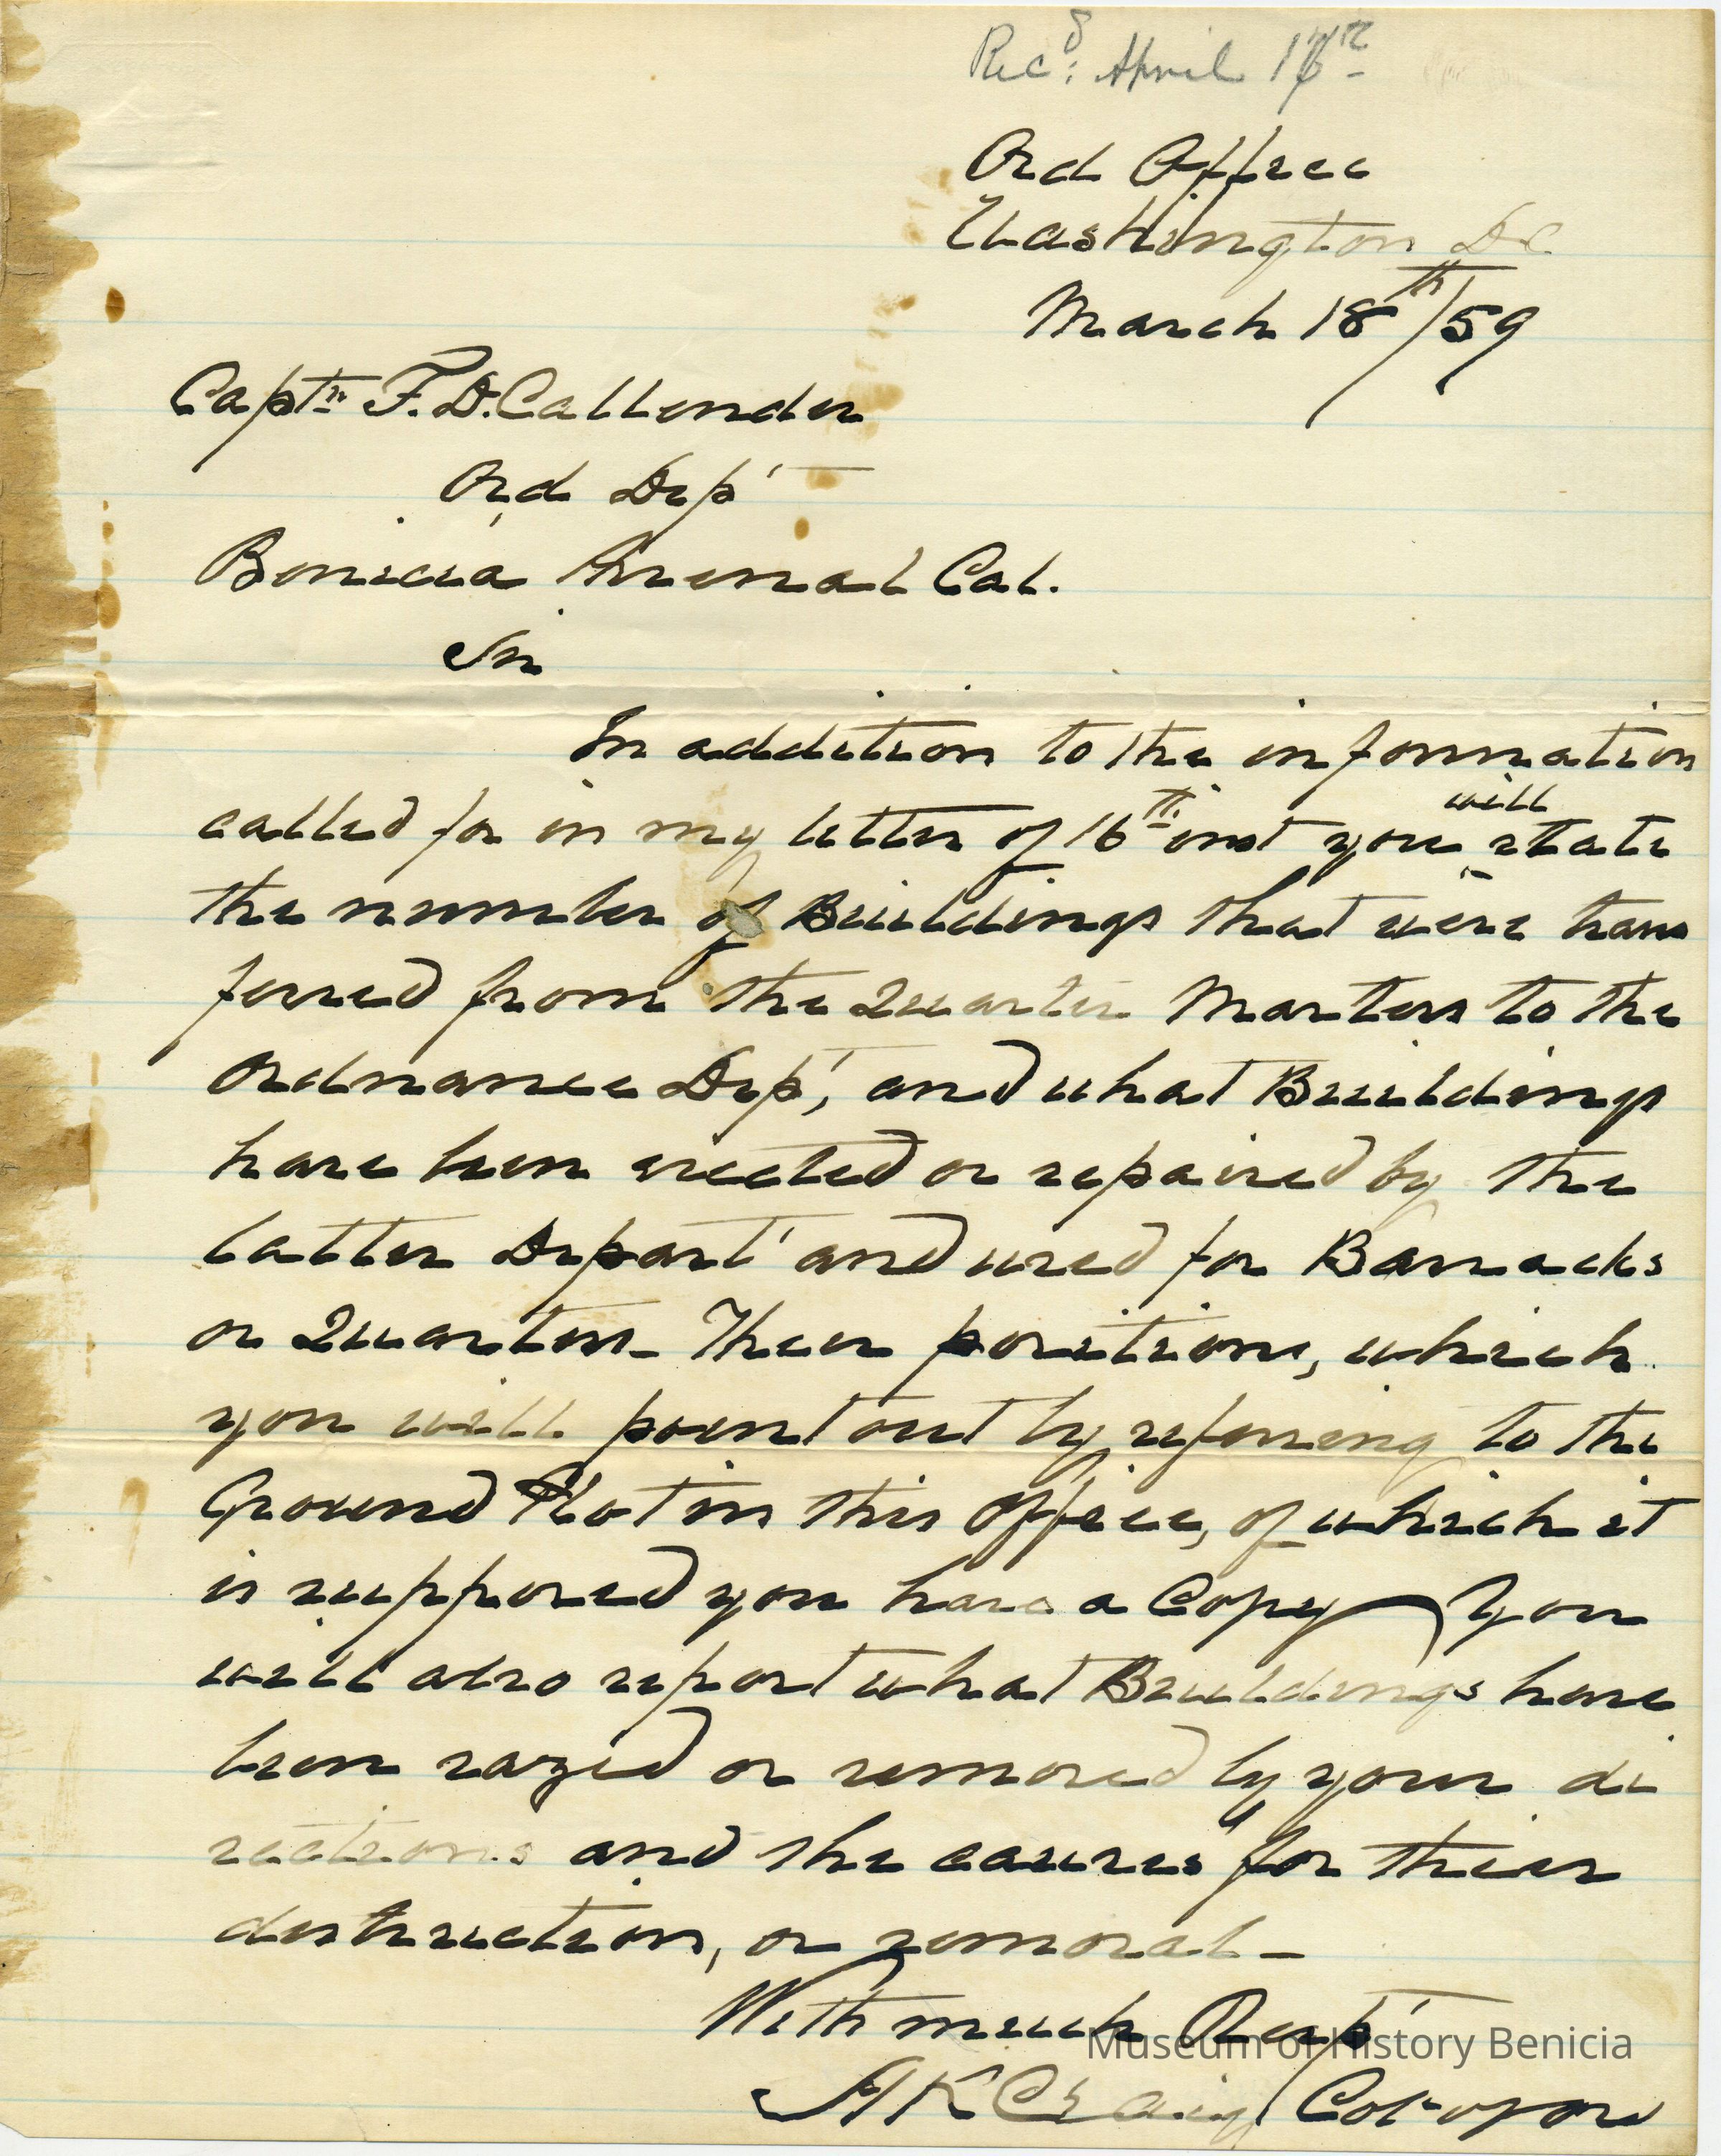 Recd: April 17th
Ord Office
Washington DC
March 18th/59
Captn F. D. Callender
Ord Dept
Benicia Arsenal Cal.
Sir
In addition to the information
called for in my letter of 16th inst you will state
the number of Buildings that were trans
ferred from the Quarter Masters to the
Ordnance Dept, and what Buildings
have been erected or repaired by the
latter Depart and used for Barracks
or Quarters - Their positions, which
you will point out by referring to the
Ground Plot in this Office, of which it
is supposed you have a Copy - You
will also report what Buildings have
been razed or removed by your di
rections and the causes for their
destruction, or removal -
With much Respt
H K Craig Col of Ord
Museum of History Benicia